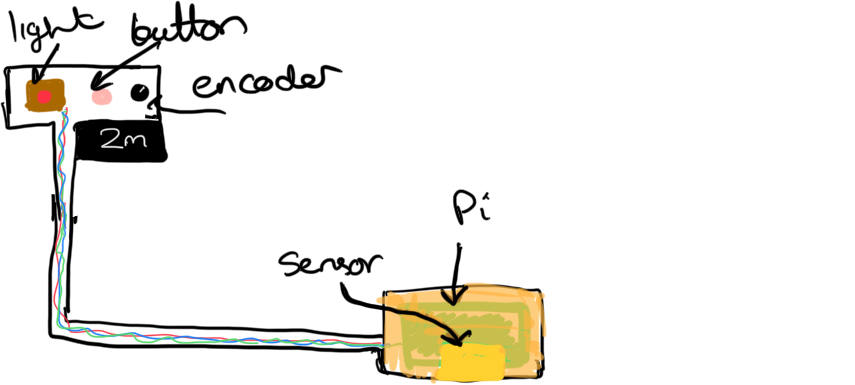 light button
encoder
2m
Pi
sensor